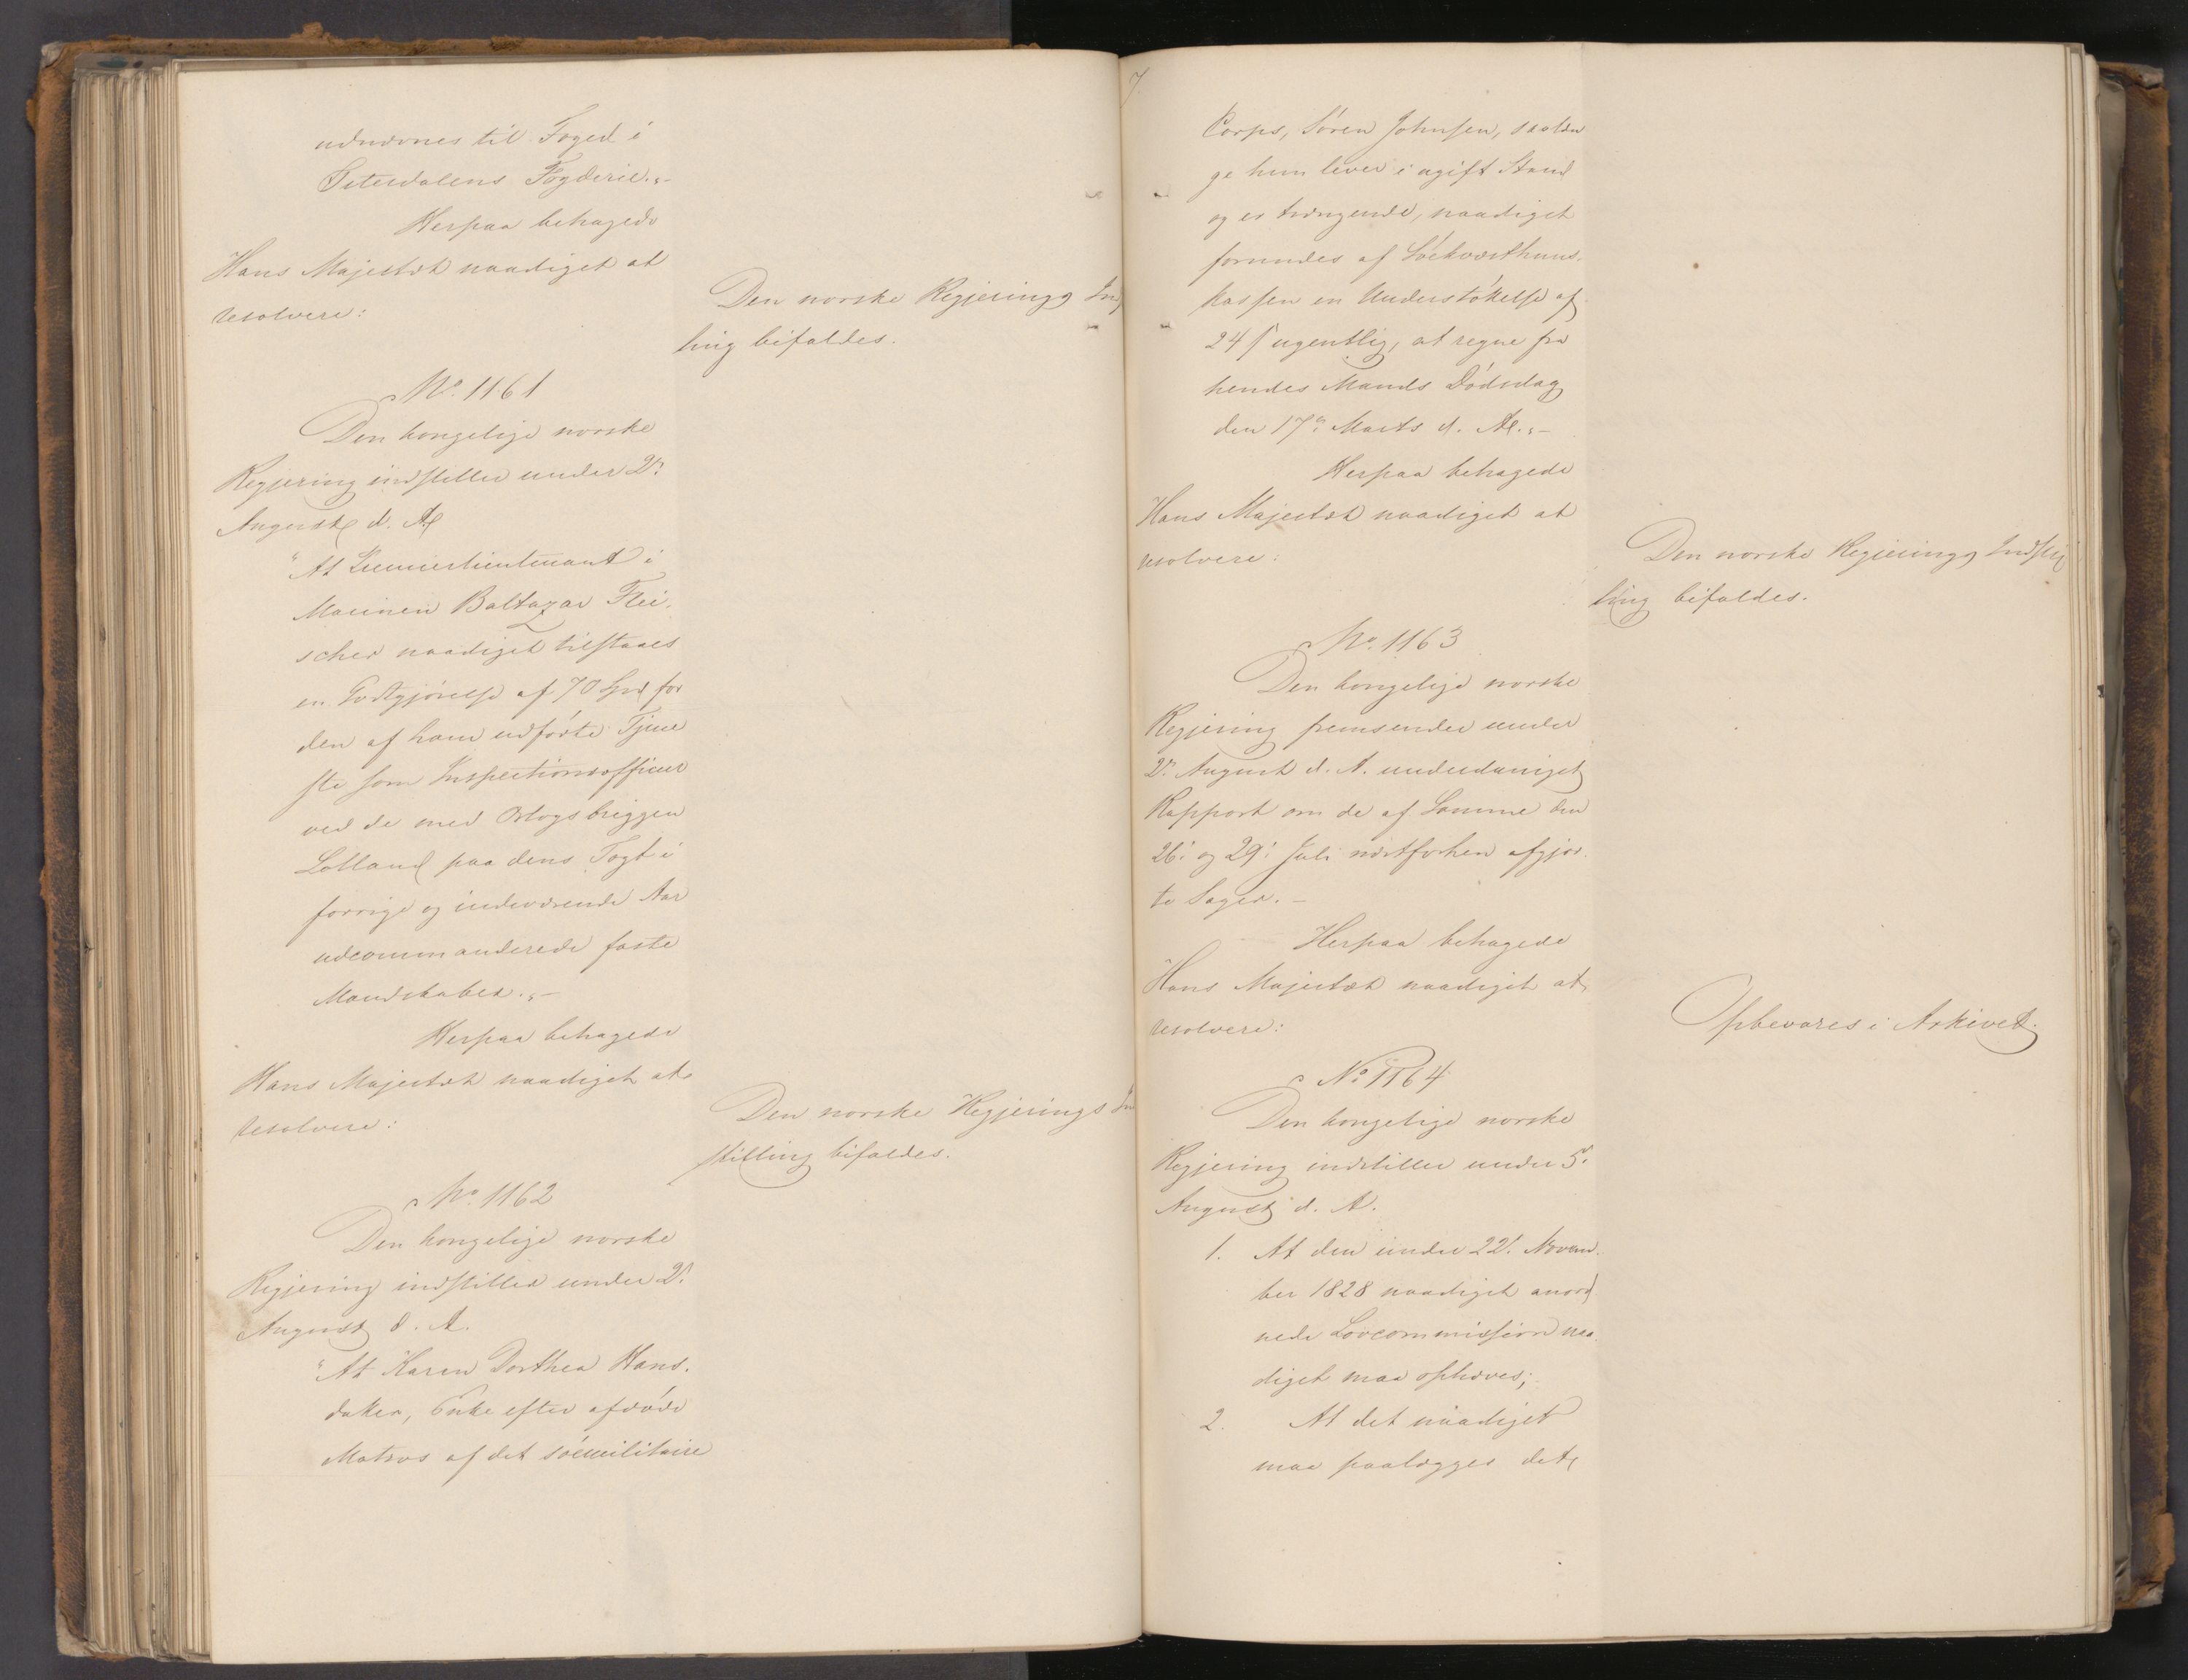 udnævnes til Foged i
Sætersdalens Fogderie."-
Herpaa behagede
Hans Majestæt naadigst at
resolvere:
Den norske Regjerings Ind
ling bifaldes.
No. 1161
Den kongelige norske
Regjering indstiller under 2n
August d. A.
"At Premierlieutenant i
Marinen Baltazar Flei-
scher naadigst tilstaaes
en Godtgjørelse af 70 Spd for
den af ham udførte Tjene
ste som Inspectionsofficeer
ved de med Orlogsbriggen
Lolland paa dens Togt i
forrige og indeværende Aar
udcommanderede faste
Mandskaber."-
Herpaa behagede
Hans Majestæt naadigst at
resolvere:
Den norske Regjerings In
stilling bifaldes.
No. 1162
Den kongelige norske
Regjering indstiller under 2n
August d. A.
"At Karen Dorthea Hans-
datter, Enke efter afdøde
Matros af det sømilitaire
7
Corps, Søren Johnsen, saalæn
ge hun lever i ugift Stand
og er trængende, naadigst
forundes af Søekvæsthuus-
kassen en Understøttelse af
24 ß ugentlig, at regne fra
hendes Mands Dødsdag
den 17n Marts d. A."-
Herpaa behagede
Hans Majestæt naadigst at
resolvere:
Den norske Regjerings Indstil
ling bifaldes.
No. 1163
Den kongelige norske
Regjering fremsender under
2n August d. A. underdanigst
Rapport om de af Samme den
26: og 29: Juli næstforhen afgjor-
te Sager.-
Herpaa behagede
Hans Majestæt naadigst at
resolvere:
Opbevares i Arkivet.
No. 1164
Den kongelige norske
Regjering indstiller under 5:
August d. A.
1. At den under 22: Novem-
ber 1828 naadigst anord
nede Lovcommission naa-
digst maa ophæves;
2. At det naadigst
maa paalægges det